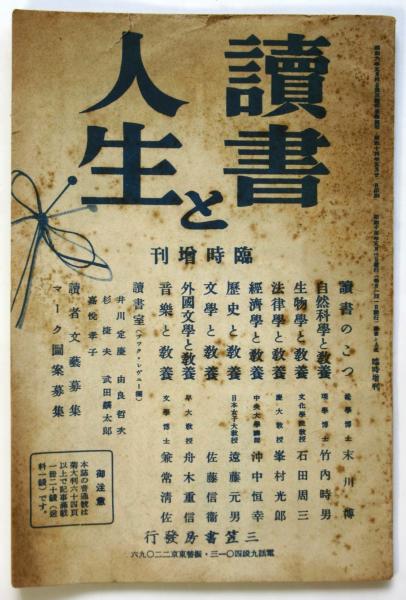 讀書
と
人生
臨時增刊
讀書のこつ 法學博士 末川博
自然科學と敎養 理學博士 竹內時男
生物學と敎養 文化學院敎授 石田周三
法律學と敎養 慶大敎授 峯村光郎
經濟學と敎養 中央大學講師 沖中恒幸
歷史と敎養 日本女子大敎授 遠藤元男
文學と敎養 佐藤信衞
外國文學と敎養 早大敎授 舟木重信
音樂と敎養 文學博士 兼常淸佐
讀書室(ブック・レヴュー欄)
井川定慶 由良哲次
杉捷夫 武田麟太郎
嘉悅孝子
讀者文藝募集
マーク圖案募集
御注意
本誌の普通號は
菊大判六十四頁
以上で記事滿載
一冊二十錢(送
料一錢)です。
三笠書房發行
電話九段四〇一三・振替東京二二〇九六
臨時增刊